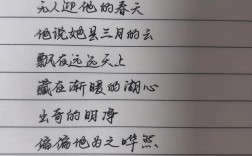 无人迎他的春天
他说她是三月的云
飘在远远天上
藏在渐暖的湖心
出奇的明净
偏偏他为之哗然